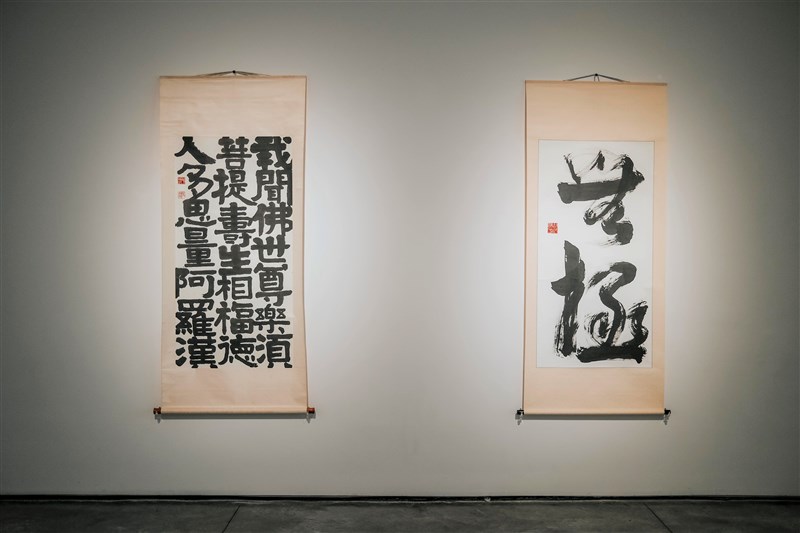 我聞佛世尊樂須
菩提壽生相福德
人多思量阿羅漢
無極